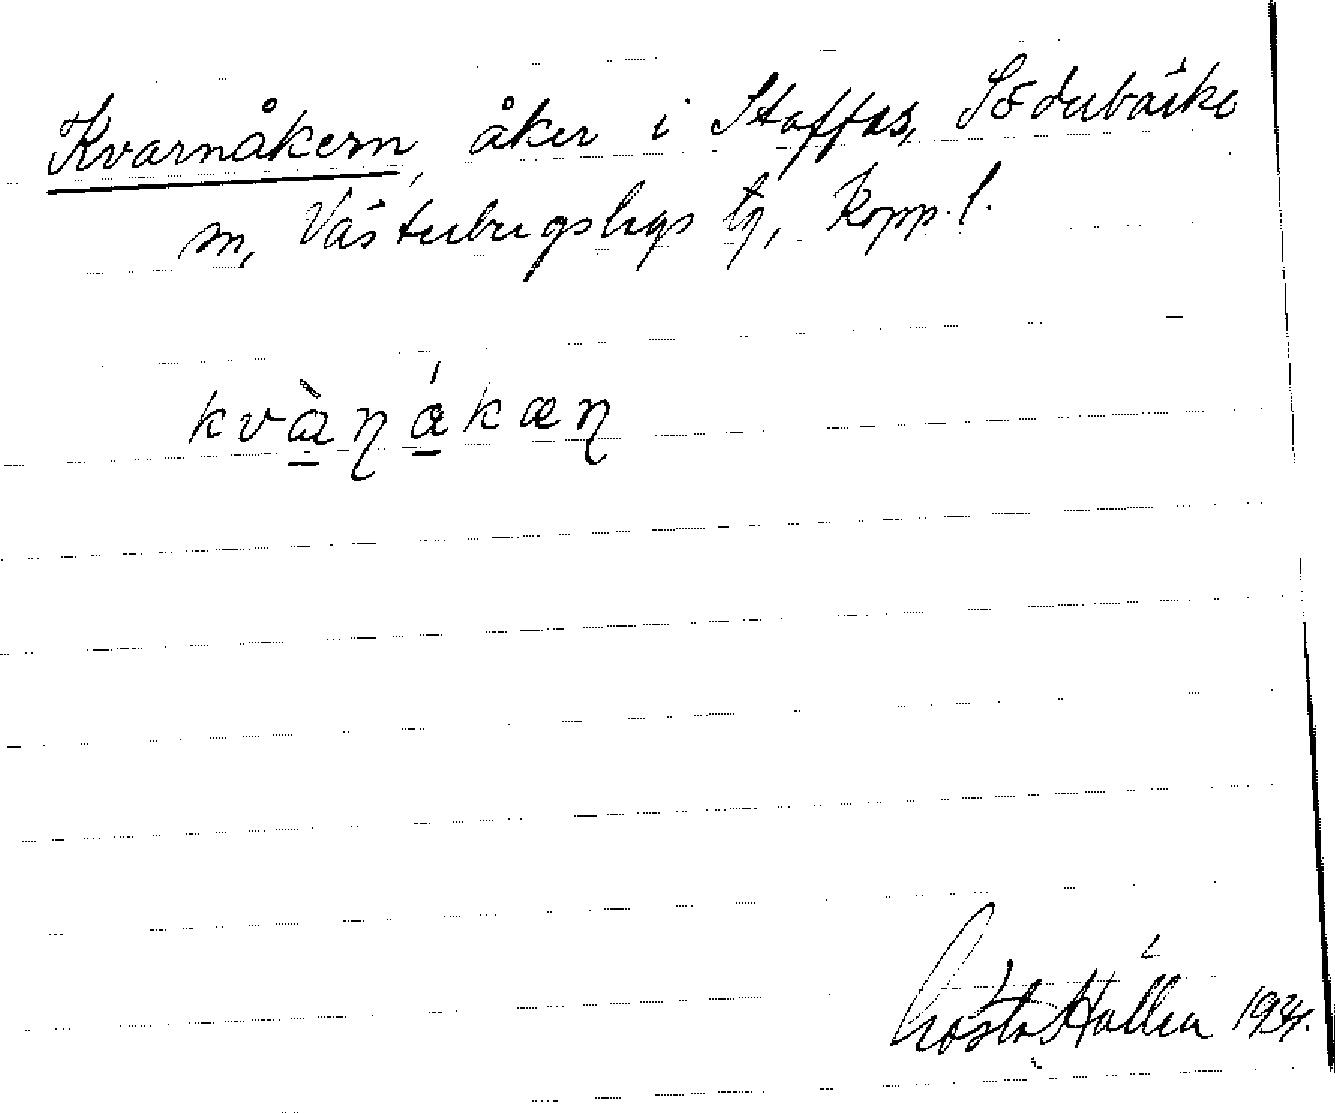 Kvarnåkern, åker i Staffas, Söderbärke
sn, Västerbergslags tg, Kopp. l.
kvànákæn
Gösta Hallén 1934.